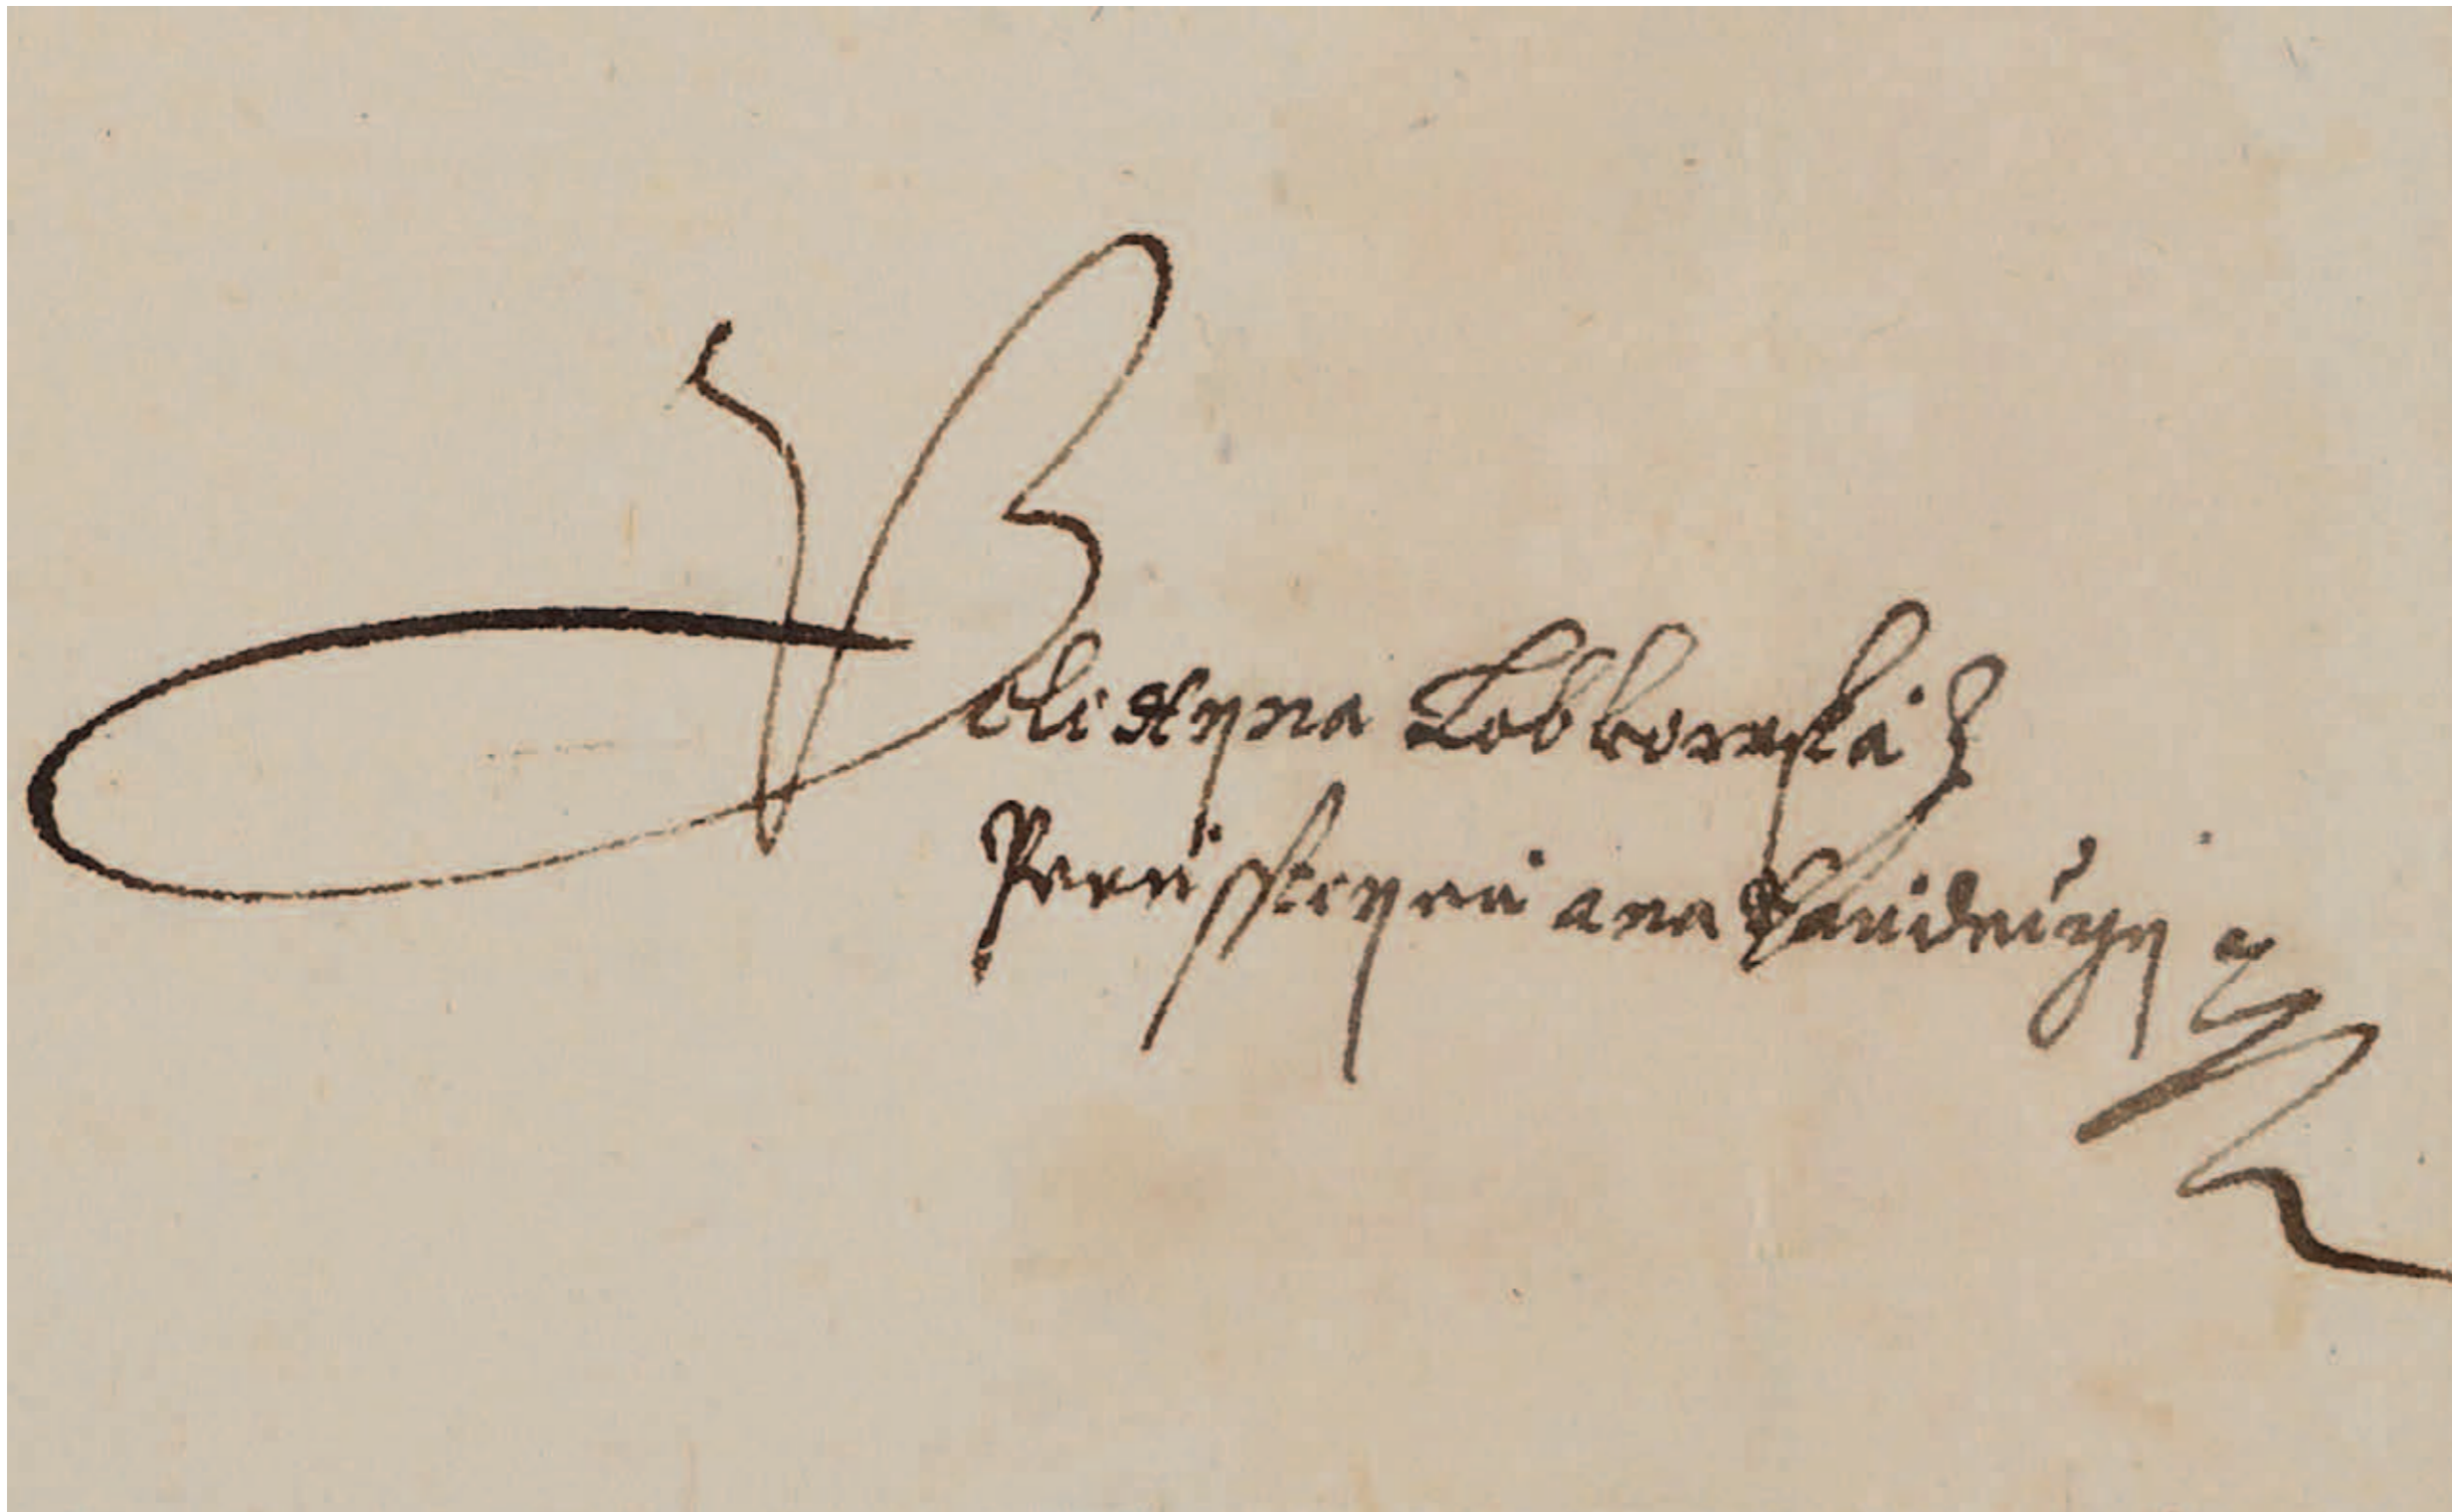 Polixyna Lobkowská z
Pernssteyna ana Raudniczy